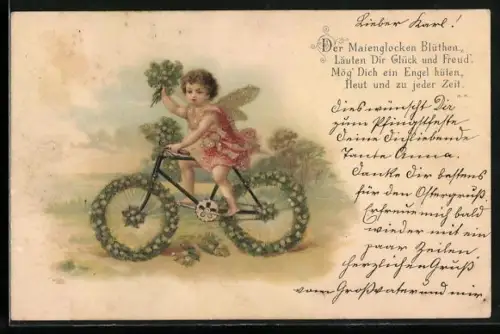 Lieber Karl!
Der Maienglocken Blüthen,
Läuten Dir Glück und Freud'.
Mög' Dich ein Engel hüten,
Heut und zu jeder Zeit.
Dies wünscht Dir
zum Pfingstfeste
Deine Dichliebende
Tante Anna.
Danke Dir bestens
für den Ostergruß.
Erfreue mich bald
wieder mit ein
paar Zeilen.
herzlichen Gruß
vom Großvater und mir.